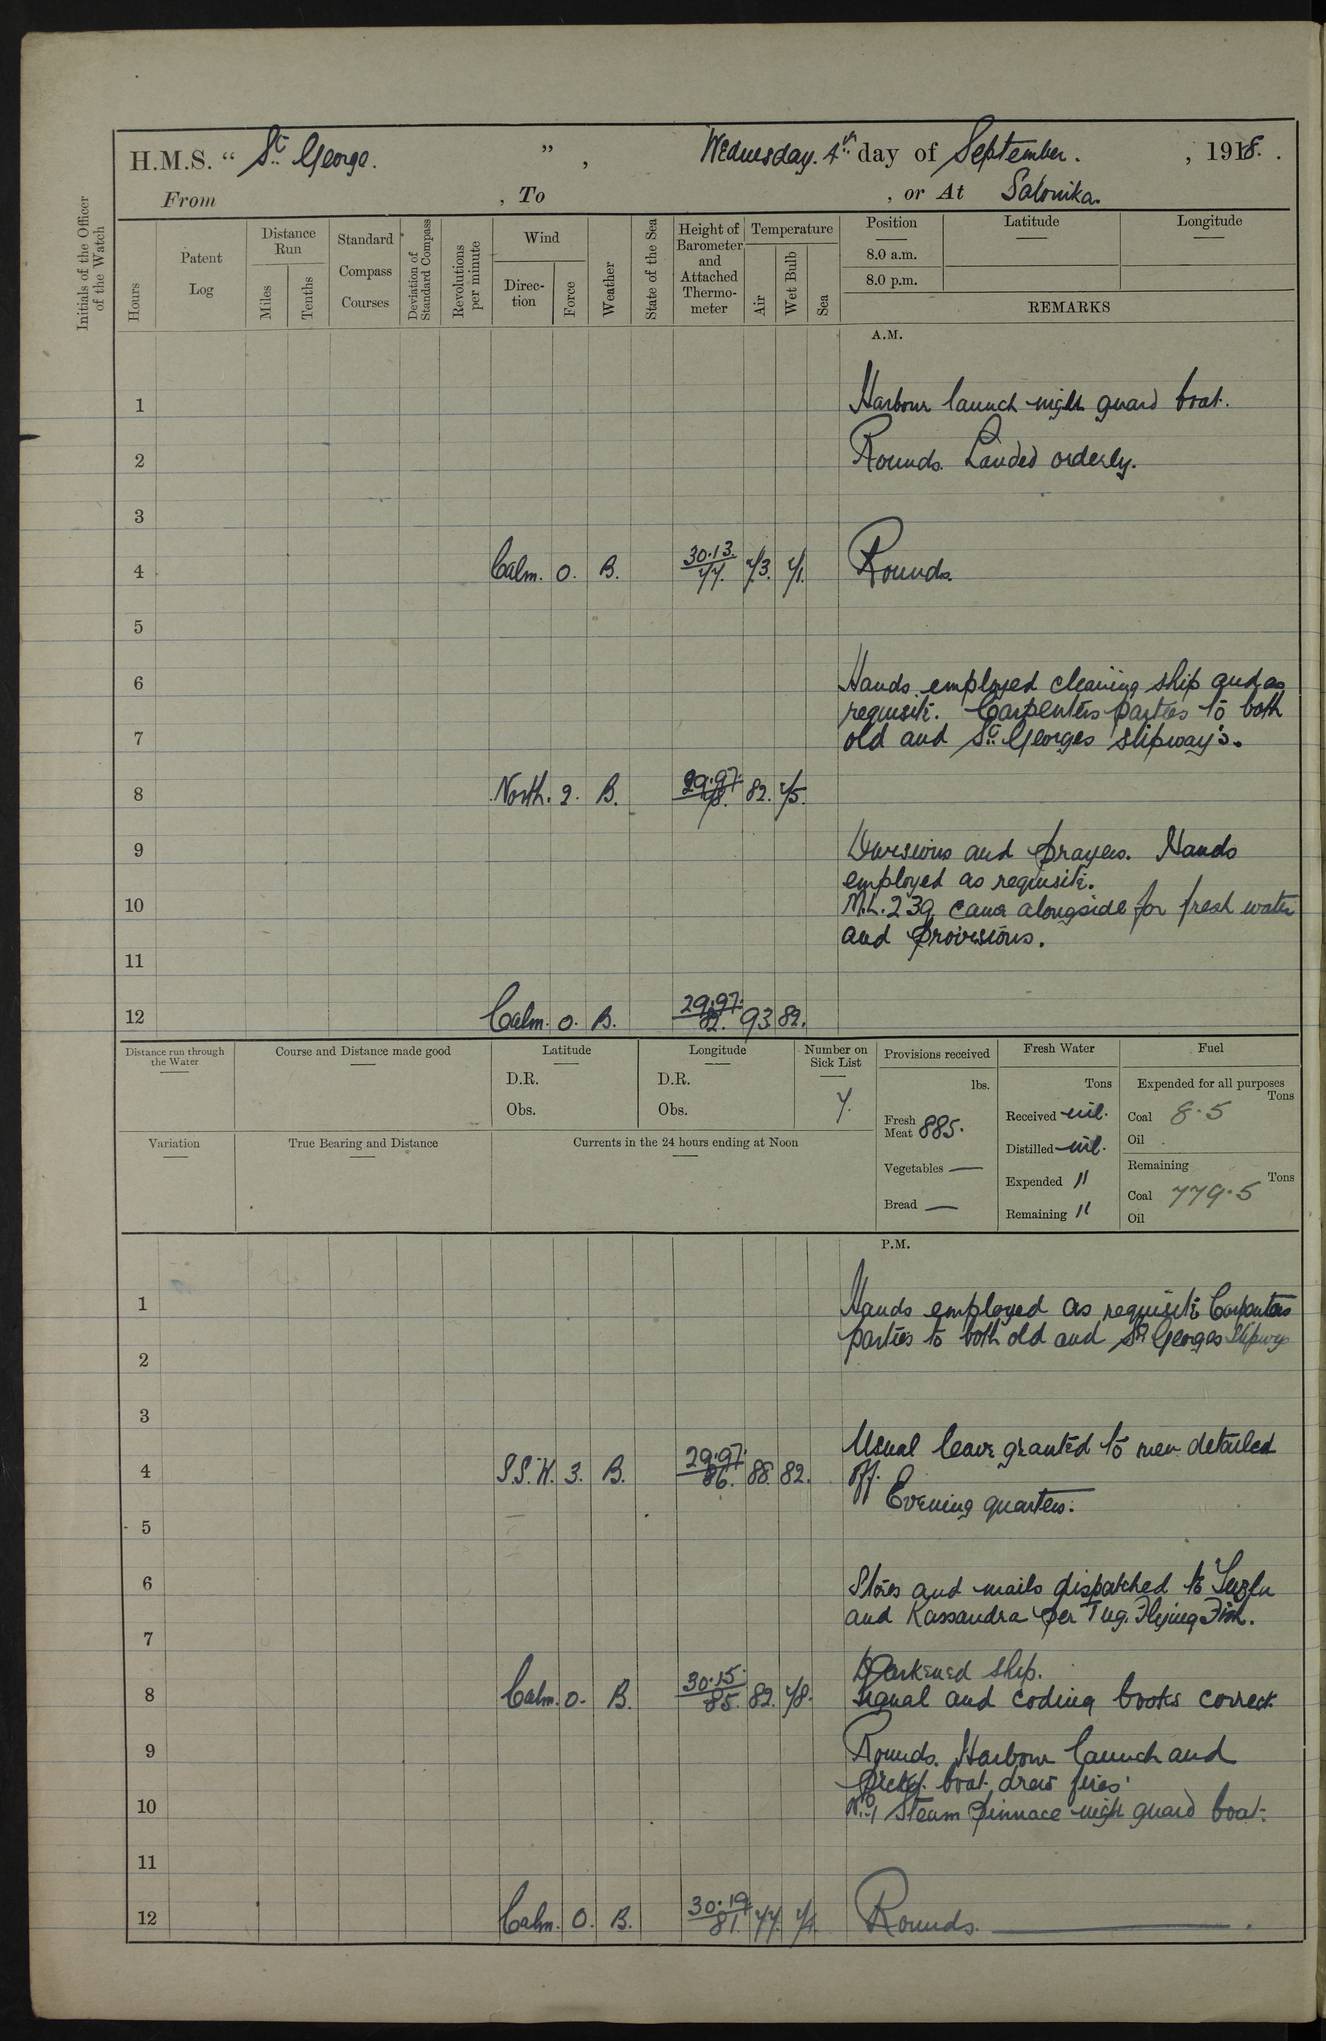 H.M.S. “ St. George. ”, Wednesday. 4th day of September. , 1918.
From , To , or At Salonika.
Initials of the Officer of the Watch
Hours
Patent Log
Distance Run
Miles
Tenths
Standard Compass Courses
Deviation of Standard Compass
Revolutions per minute
Wind
Direction
Force
Weather
State of the Sea
Height of Barometer and Attached Thermometer
Temperature
Air
Wet Bulb
Sea
Position
8.0 a.m.
8.0 p.m.
Latitude
Longitude
REMARKS
A.M.
1 Harbour launch night guard boat.
2 Rounds. Landed orderly.
3
4 Calm. 0. B. 30.13. 77. 73. 71. Rounds.
5
6 Hands employed cleaning ship and as
requisite. Carpenters parties to both
7 old and St. Georges slipway's.
8 North. 2. B. 29.97. 78. 82. 75.
9 Divisions and Prayers. Hands
employed as requisite.
10 M.L. 239 came alongside for fresh water
and Provisions.
11
12 Calm. 0. B. 29.97. 82. 93 82.
Distance run through the Water
Course and Distance made good
Latitude
D.R.
Obs.
Longitude
D.R.
Obs.
Number on Sick List
7.
Variation
True Bearing and Distance
Currents in the 24 hours ending at Noon
Provisions received
lbs.
Fresh Meat 885.
Vegetables —
Bread —
Fresh Water
Tons
Received nil.
Distilled nil.
Expended "
Remaining "
Fuel
Expended for all purposes
Tons
Coal 8.5
Oil
Remaining
Tons
Coal 779.5
Oil
P.M.
1 Hands employed as requisite Carpenters
parties to both old and St Georges Slipways
2
3
Usual leave granted to men detailed
4 S.S.W. 3. B. 29.97. 86. 88. 82. off.
Evening quarters.
5
6 Stores and mails dispatched to Tuzla
and Kassandra per Tug. Flying Fish.
7
Darkened ship.
8 Calm. 0. B. 30.15. 85. 82. 78. Signal and coding books correct
9 Rounds. Harbour launch and
picket boat drew fires.
10 No. 1 Steam Pinnace night guard boat.
11
12 Calm. 0. B. 30.19. 81. 77. Rounds.